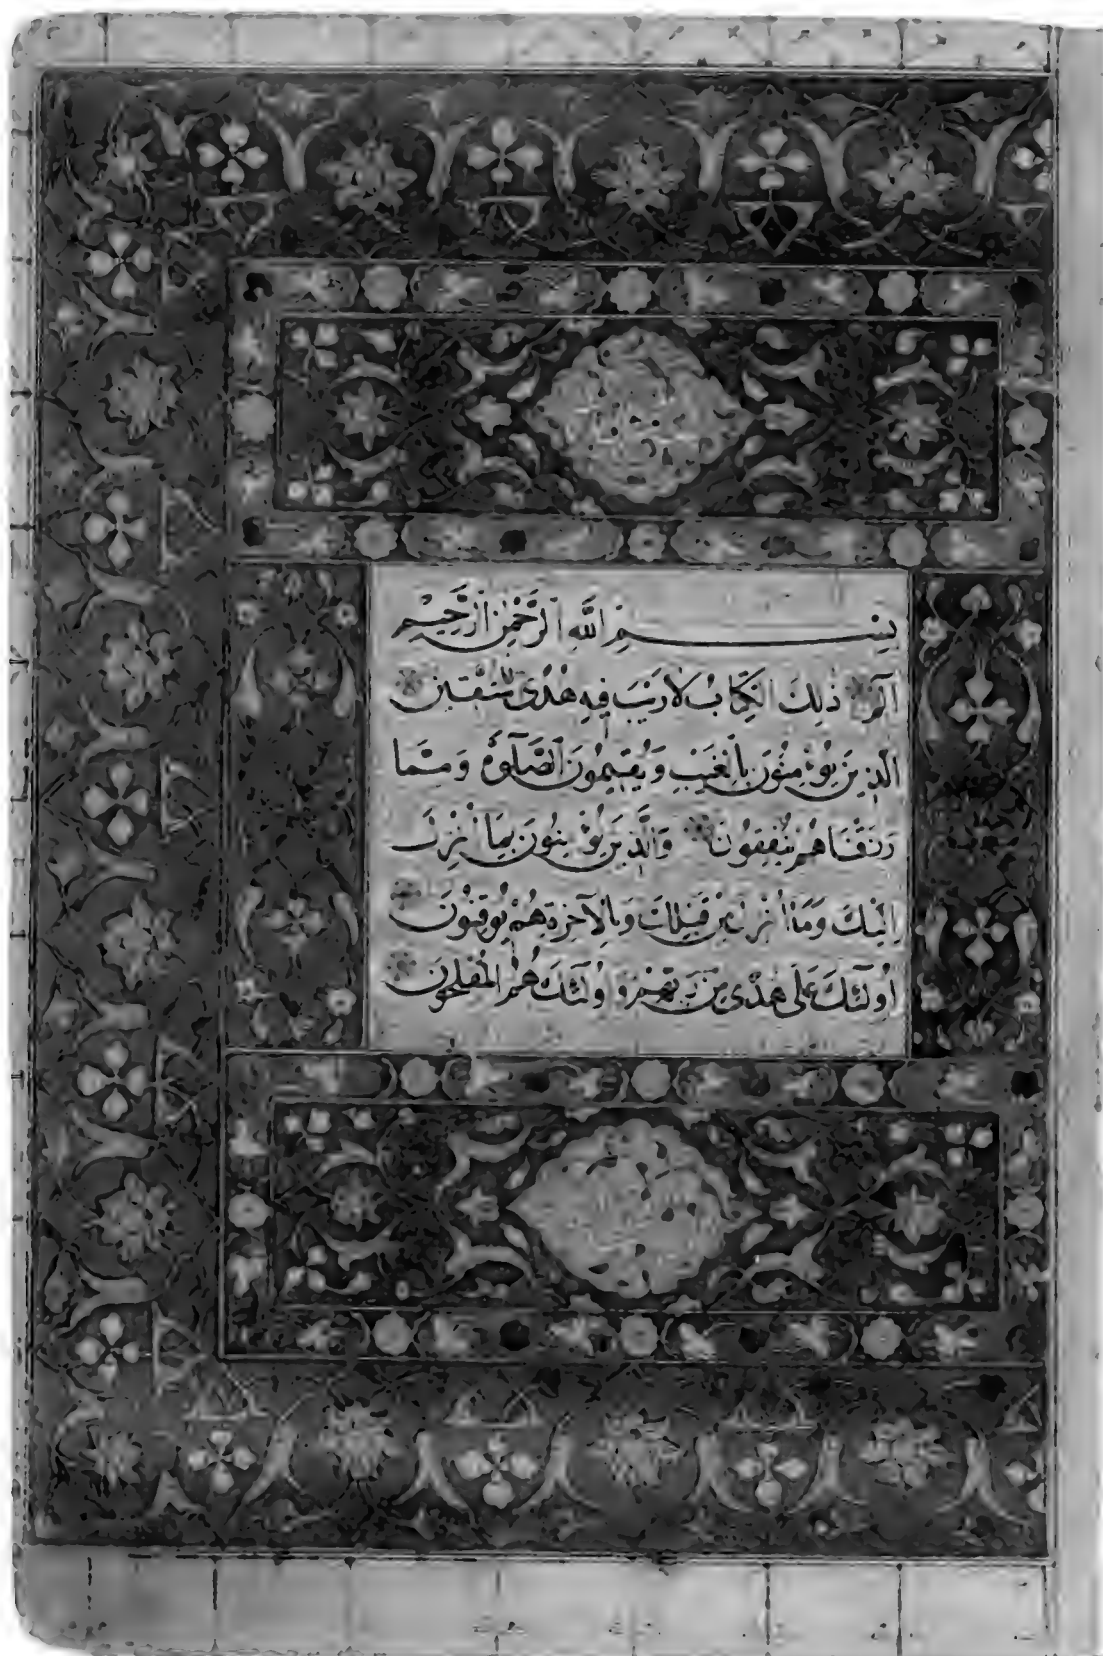 بِسْمِ اللَّهِ الرَّحْمٰنِ الرَّحِيمِ
الٓمٓ ذٰلِكَ الْكِتَابُ لَا رَيْبَ فِيهِ هُدًى لِلْمُتَّقِينَ
الَّذِينَ يُؤْمِنُونَ بِالْغَيْبِ وَيُقِيمُونَ الصَّلٰوةَ وَمِمَّا
رَزَقْنَاهُمْ يُنْفِقُونَ وَالَّذِينَ يُؤْمِنُونَ بِمَا أُنْزِلَ
إِلَيْكَ وَمَا أُنْزِلَ مِنْ قَبْلِكَ وَبِالْآخِرَةِ هُمْ يُوقِنُونَ
أُولٰئِكَ عَلَى هُدًى مِنْ رَبِّهِمْ وَأُولٰئِكَ هُمُ الْمُفْلِحُونَ